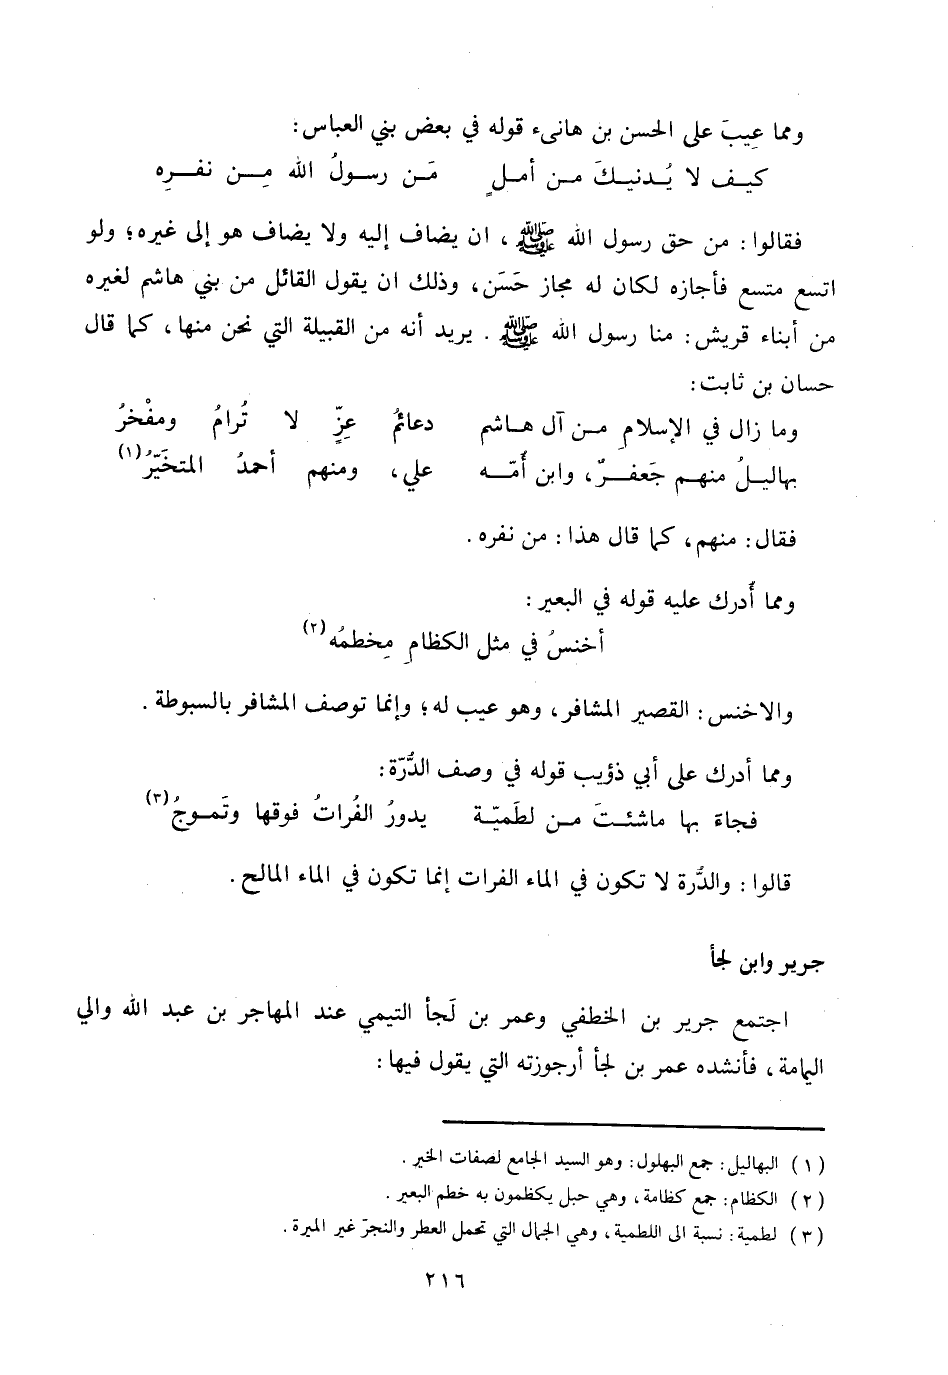 ومما عِيبَ على الحسن بن هانىء قوله في بعض بني العباس:
كيـف لا يُـدنيـكَ مـن أمـلٍ مَـن رسـولُ الله مِـن نفـرِه
فقالوا: من حق رسول الله ﷺ، ان يضاف إليه ولا يضاف هو إلى غيره؛ ولو
اتسع متسع فأجازه لكان له مجاز حَسَن، وذلك ان يقول القائل من بني هاشم لغيره
من أبناء قريش: منا رسول الله ﷺ. يريد أنه من القبيلة التي نحن منها، كما قال
حسان بن ثابت:
وما زال في الإسلامِ مـن آل هـاشم دعائمُ عِزٍّ لا تُرامُ ومفْخرُ
بهاليـلُ منهـم جَعفـرٌ، وابن أُمّـه علي، ومنهم أحمدُ المتخَيَّرُ(١)
فقال: منهم، كما قال هذا: من نفره.
ومما أُدرك عليه قوله في البعير:
أخنسُ في مثل الكظامِ مِخطمُه(٢)
والاخنس: القصير المشافر، وهو عيب له؛ وإنما توصف المشافر بالسبوطة.
ومما أدرك على أبي ذؤيب قوله في وصف الدُّرّة:
فجاءَ بها ماشئـتَ مـن لطَميّـة يدورُ الفُراتُ فوقها وتَموجُ(٣)
قالوا: والدُّرة لا تكون في الماء الفرات إنما تكون في الماء المالح.
جرير وابن لجأ
اجتمع جرير بن الخطفي وعمر بن لَجأ التيمي عند المهاجر بن عبد الله والي
اليمامة، فأنشده عمر بن لجأ أرجوزته التي يقول فيها:
(١) البهاليل: جمع البهلول: وهو السيد الجامع لصفات الخير.
(٢) الكظام: جمع كظامة، وهي حبل يكظمون به خطم البعير.
(٣) لطمية: نسبة الى اللطمية، وهي الجمال التي تحمل العطر والنجرّ غير الميرة.
٢١٦